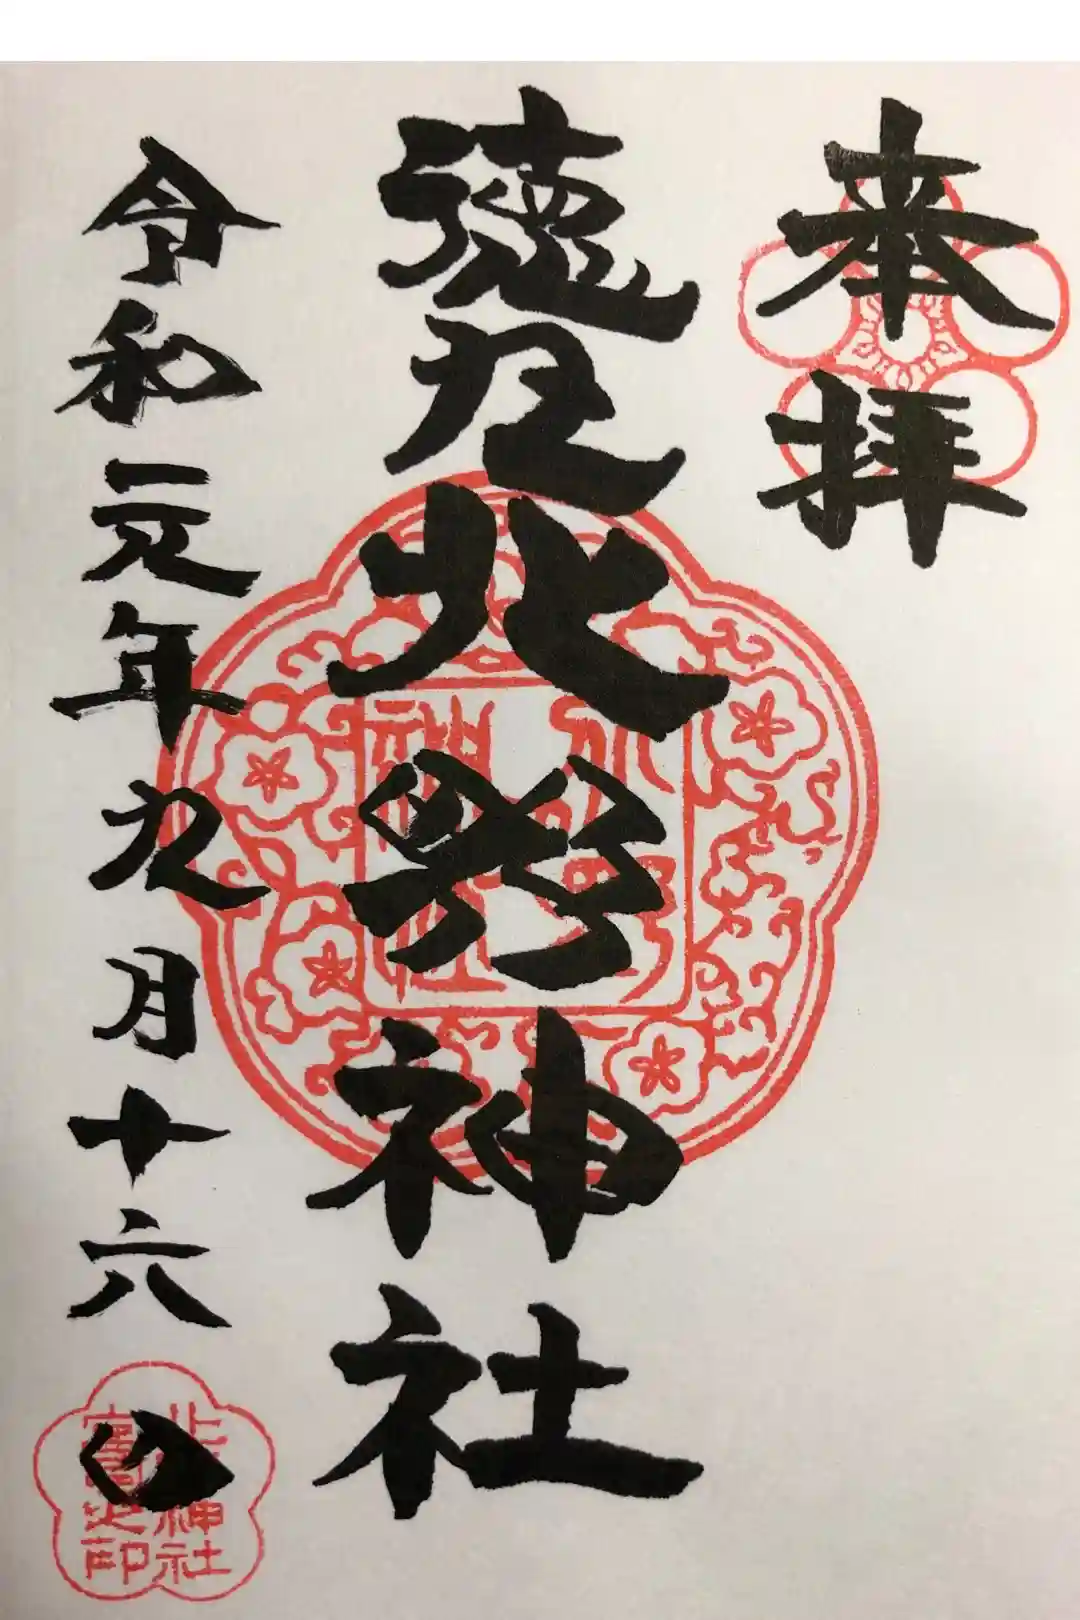 奉拝
徳丸北野神社
令和元年九月十六日
北野神社
宮司之印